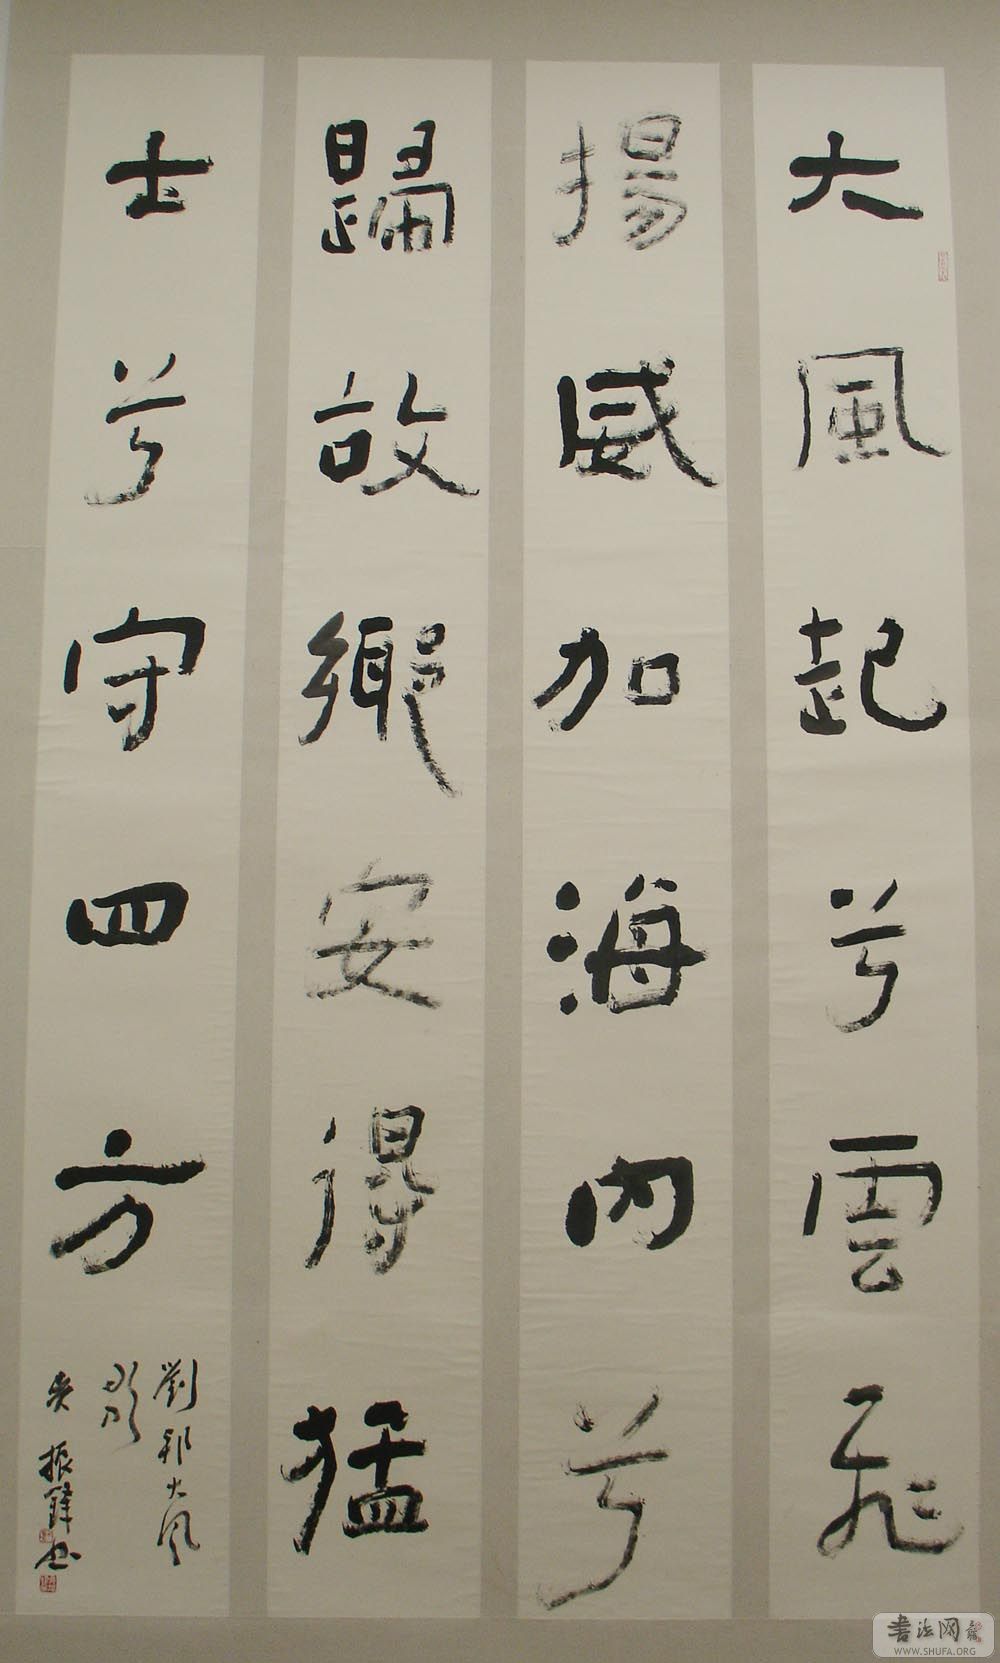 大風起兮雲飛
揚威加海内兮
歸故鄉安得猛
士兮守四方
劉邦大風
歌
吴振鋒书
书法网
WWW.SHUFA.ORG